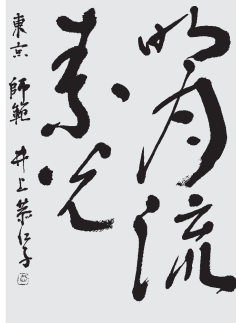 明月流
素光
東京 師範 井上恭仁子